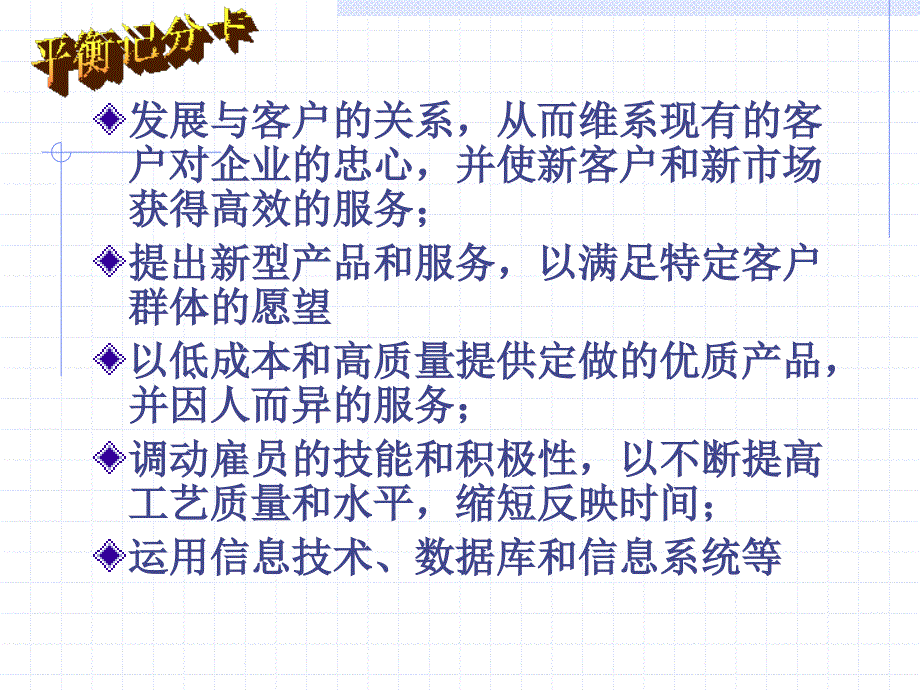 平衡记分卡
发展与客户的关系，从而维系现有的客
户对企业的忠心，并使新客户和新市场
获得高效的服务；
提出新型产品和服务，以满足特定客户
群体的愿望
以低成本和高质量提供定做的优质产品，
并因人而异的服务；
调动雇员的技能和积极性，以不断提高
工艺质量和水平，缩短反映时间；
运用信息技术、数据库和信息系统等